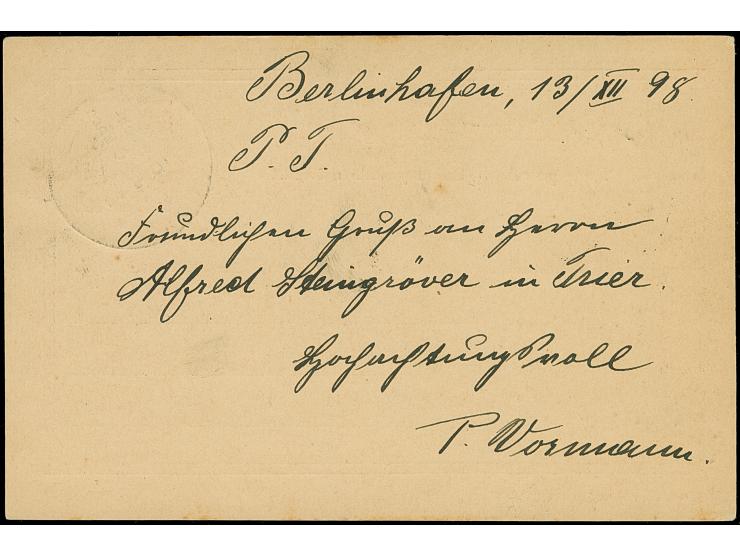 Berlinhafen, 13/XII 98.
P. T.
Freundlichen Gruß an Herrn
Alfred Steingröver in Trier.
Hochachtungsvoll
P. Vormann.